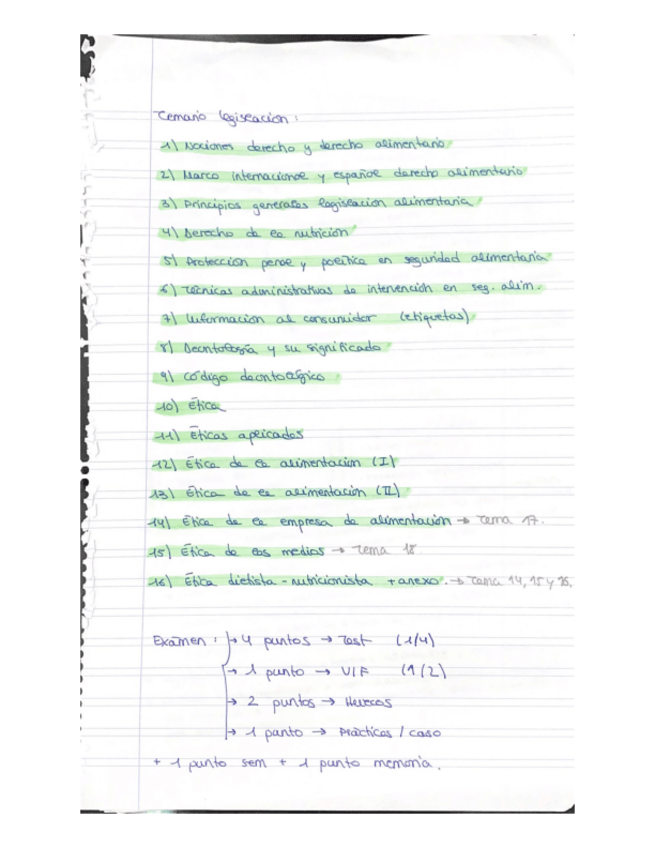 Temario legislación:
1) Nociones derecho y derecho alimentario
2) Marco internacional y español derecho alimentario
3) Principios generales legislación alimentaria
4) Derecho de la nutrición
5) Protección penal y política en seguridad alimentaria
6) Técnicas administrativas de intervención en seg. alim.
7) Información al consumidor (etiquetas)
8) Deontología y su significado
9) Código deontológico
10) Ética
11) Éticas aplicadas
12) Ética de la alimentación (I)
13) Ética de la alimentación (II)
14) Ética de la empresa de alimentación → Tema 17.
15) Ética de los medios → Tema 18.
16) Ética dietista-nutricionista + anexo. → Tema 14, 15 y 16.
Examen: → 4 puntos → Test (1/4)
→ 1 punto → V/F (1/2)
→ 2 puntos → Huecos
→ 1 punto → Prácticas / caso
+ 1 punto sem + 1 punto memoria.